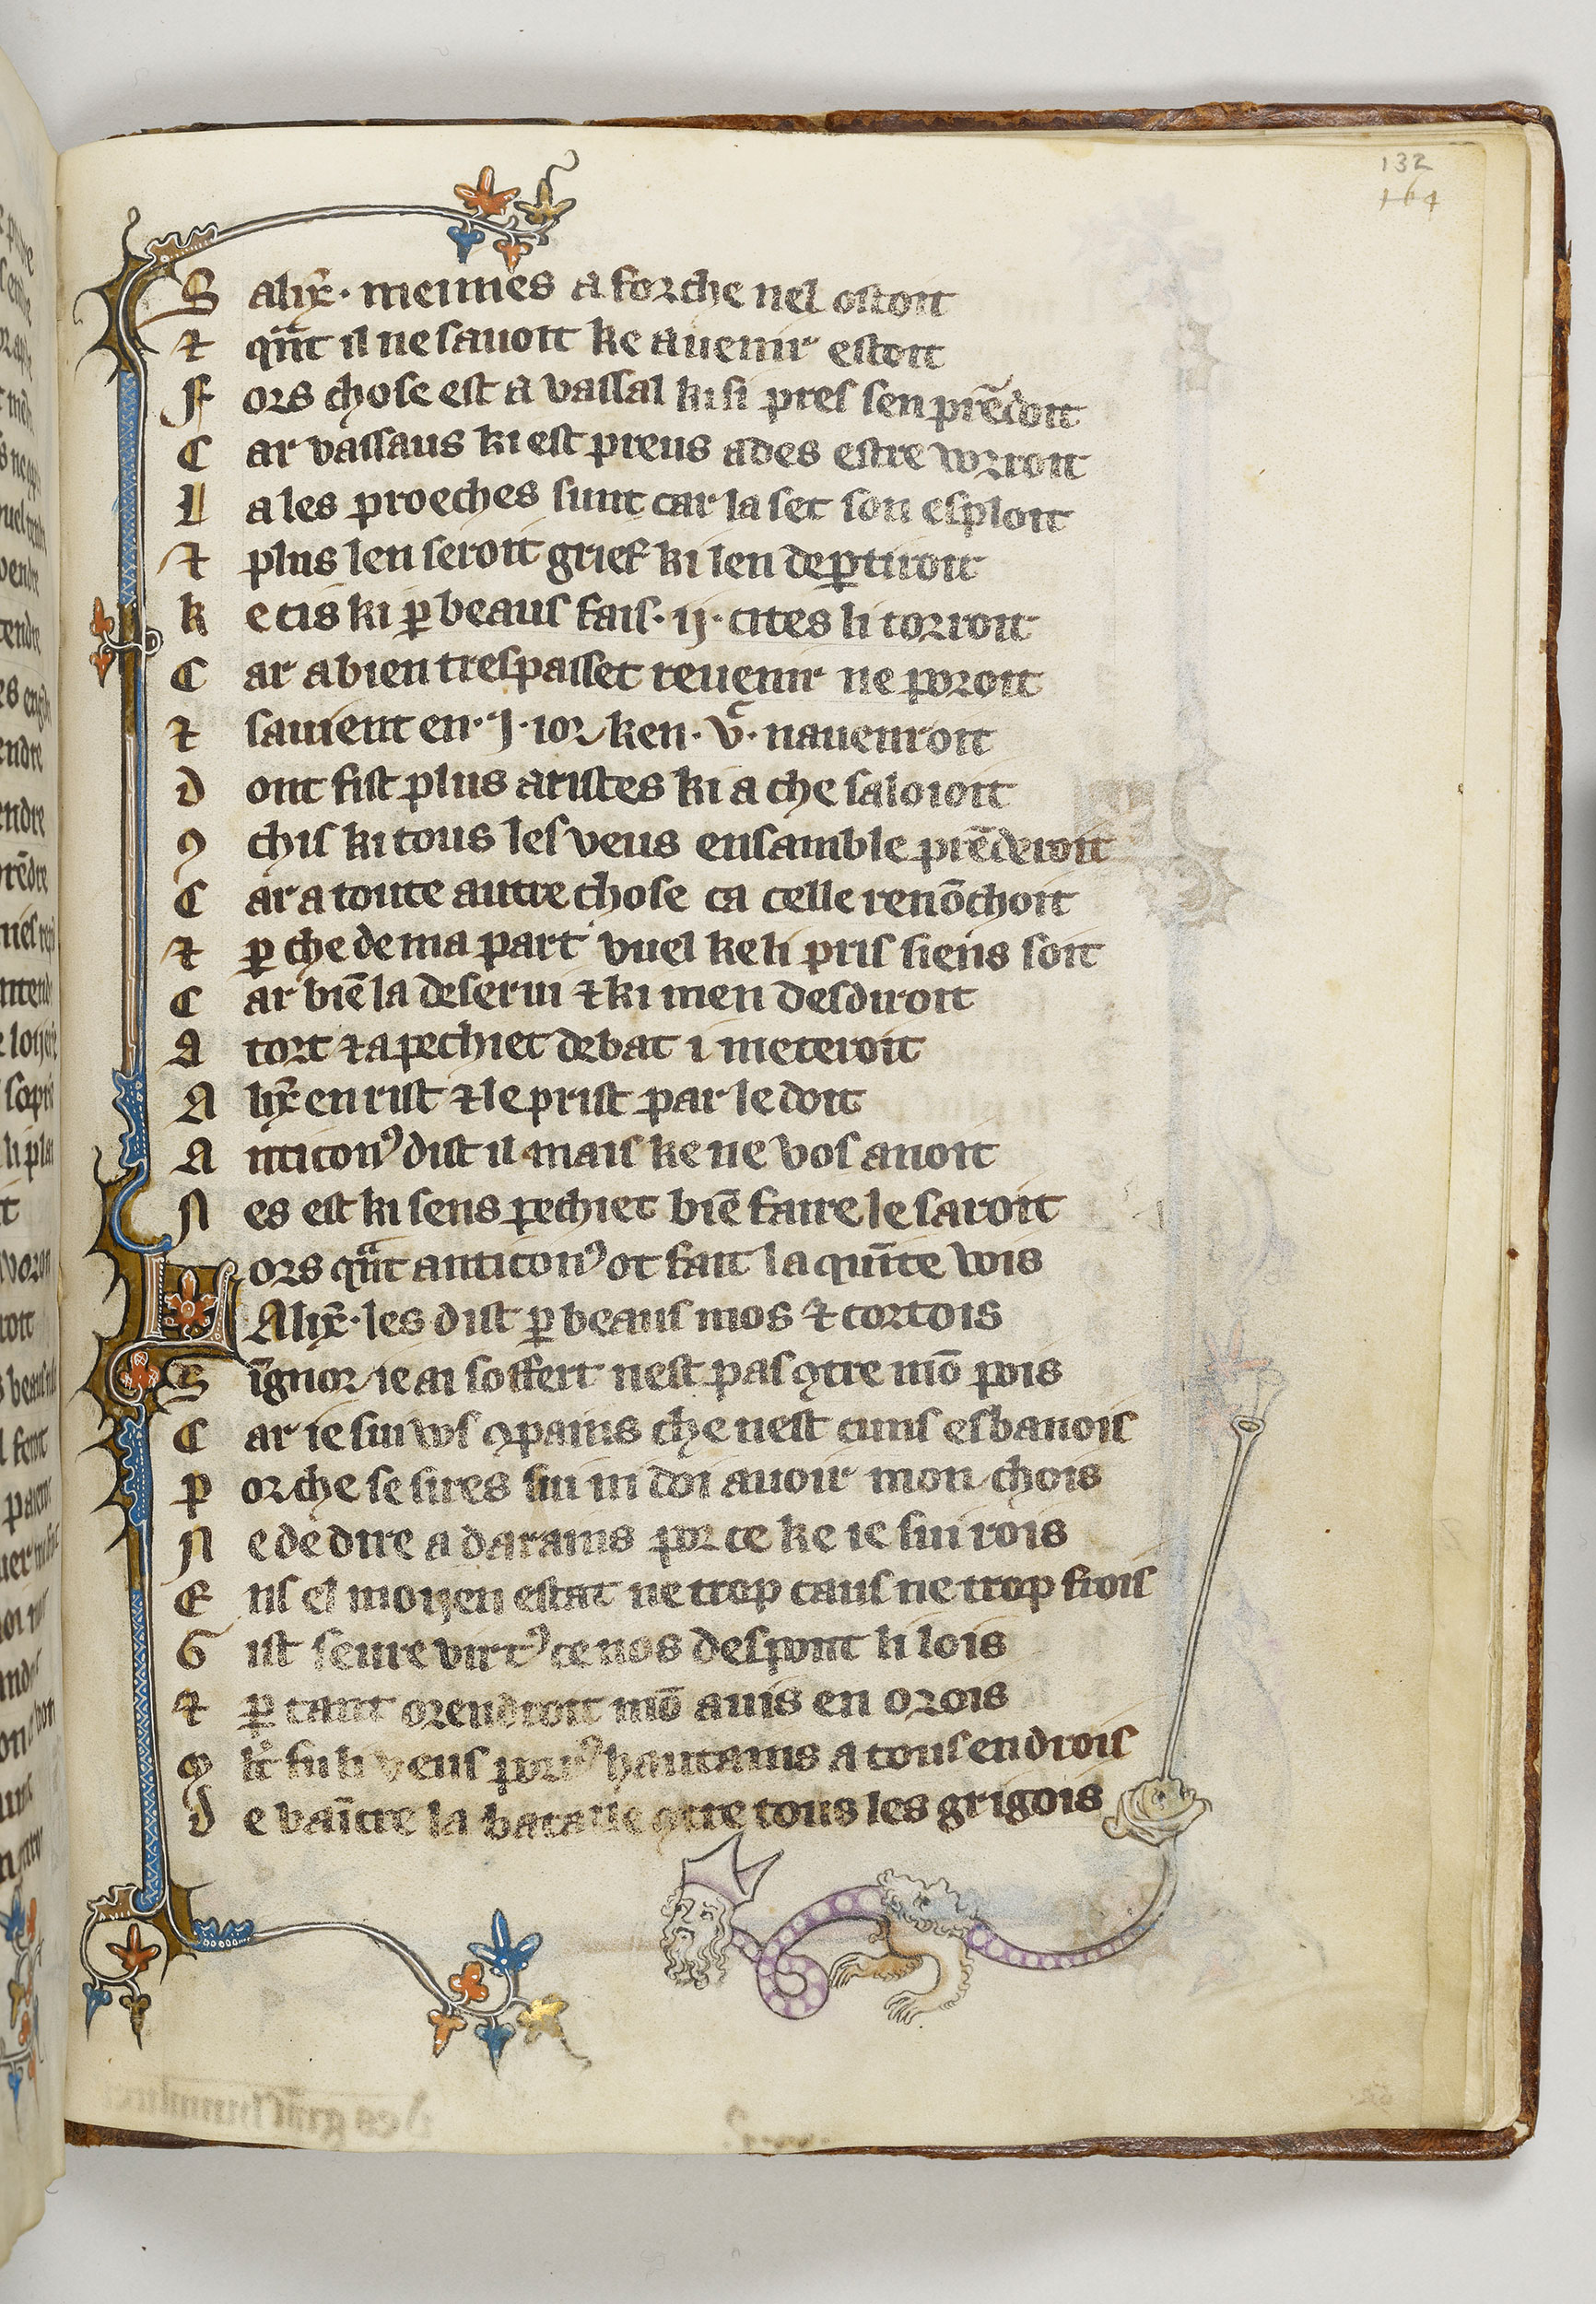 132
164
S alix̄. meimes a forche nel ostoit
⁊ qn̄t il ne sauoit ke auenir estoit
F ors chose est a vassal ki si pres sen prēdoit
C ar vassaus ki est preus ades estre vorroit
L a les proeches sunt car la set son esploit
⁊ plus len seroit grief ki len deꝑtiroit
k e cis ki ꝑ beaus fais. ij. cites li torroit
C ar a bien trespasset reuenir ne poroit
⁊ sauient en. j. ior ken. v.c nauenroit
D ont fist plus aristes ki a che saloioit
ꝯ chis ki tous les veus ensamble prēderoit
C ar a toute autre chose ca celle renōchoit
⁊ ꝑ che de ma part vuel ke li pris siens soit
C ar biē la deserui ⁊ ki men desdiroit
A tort ⁊ a pechiet debat i meteroit
A lix̄ en rist ⁊ le prist par le doit
A nticonꝰ dist il mais ke ne vos anoit
N es est ki sens pechiet biē faire le saroit
L ors qn̄t anticonꝰ ot fait la quīte vois
Alix̄. les dist ꝑ beaus mos ⁊ cortois
S ignor ie ai soffert nest pas ꝯtre mō pois
C ar ie sui vos ꝯpains che nest cuns esbanois
P or che se sires sui ni doi auoir mon chois
N e de dire a darains por ce ke ie sui rois
E ns el moijen estat ne trop caus ne trop frois
G ist seure virtꝰ ce nos despont li lois
⁊ ꝑ tant orendroit mō auis en orois
fu li veus porꝰ hautains a tous endrois
D e vaīcre la bataille ꝯtre tous les grigois